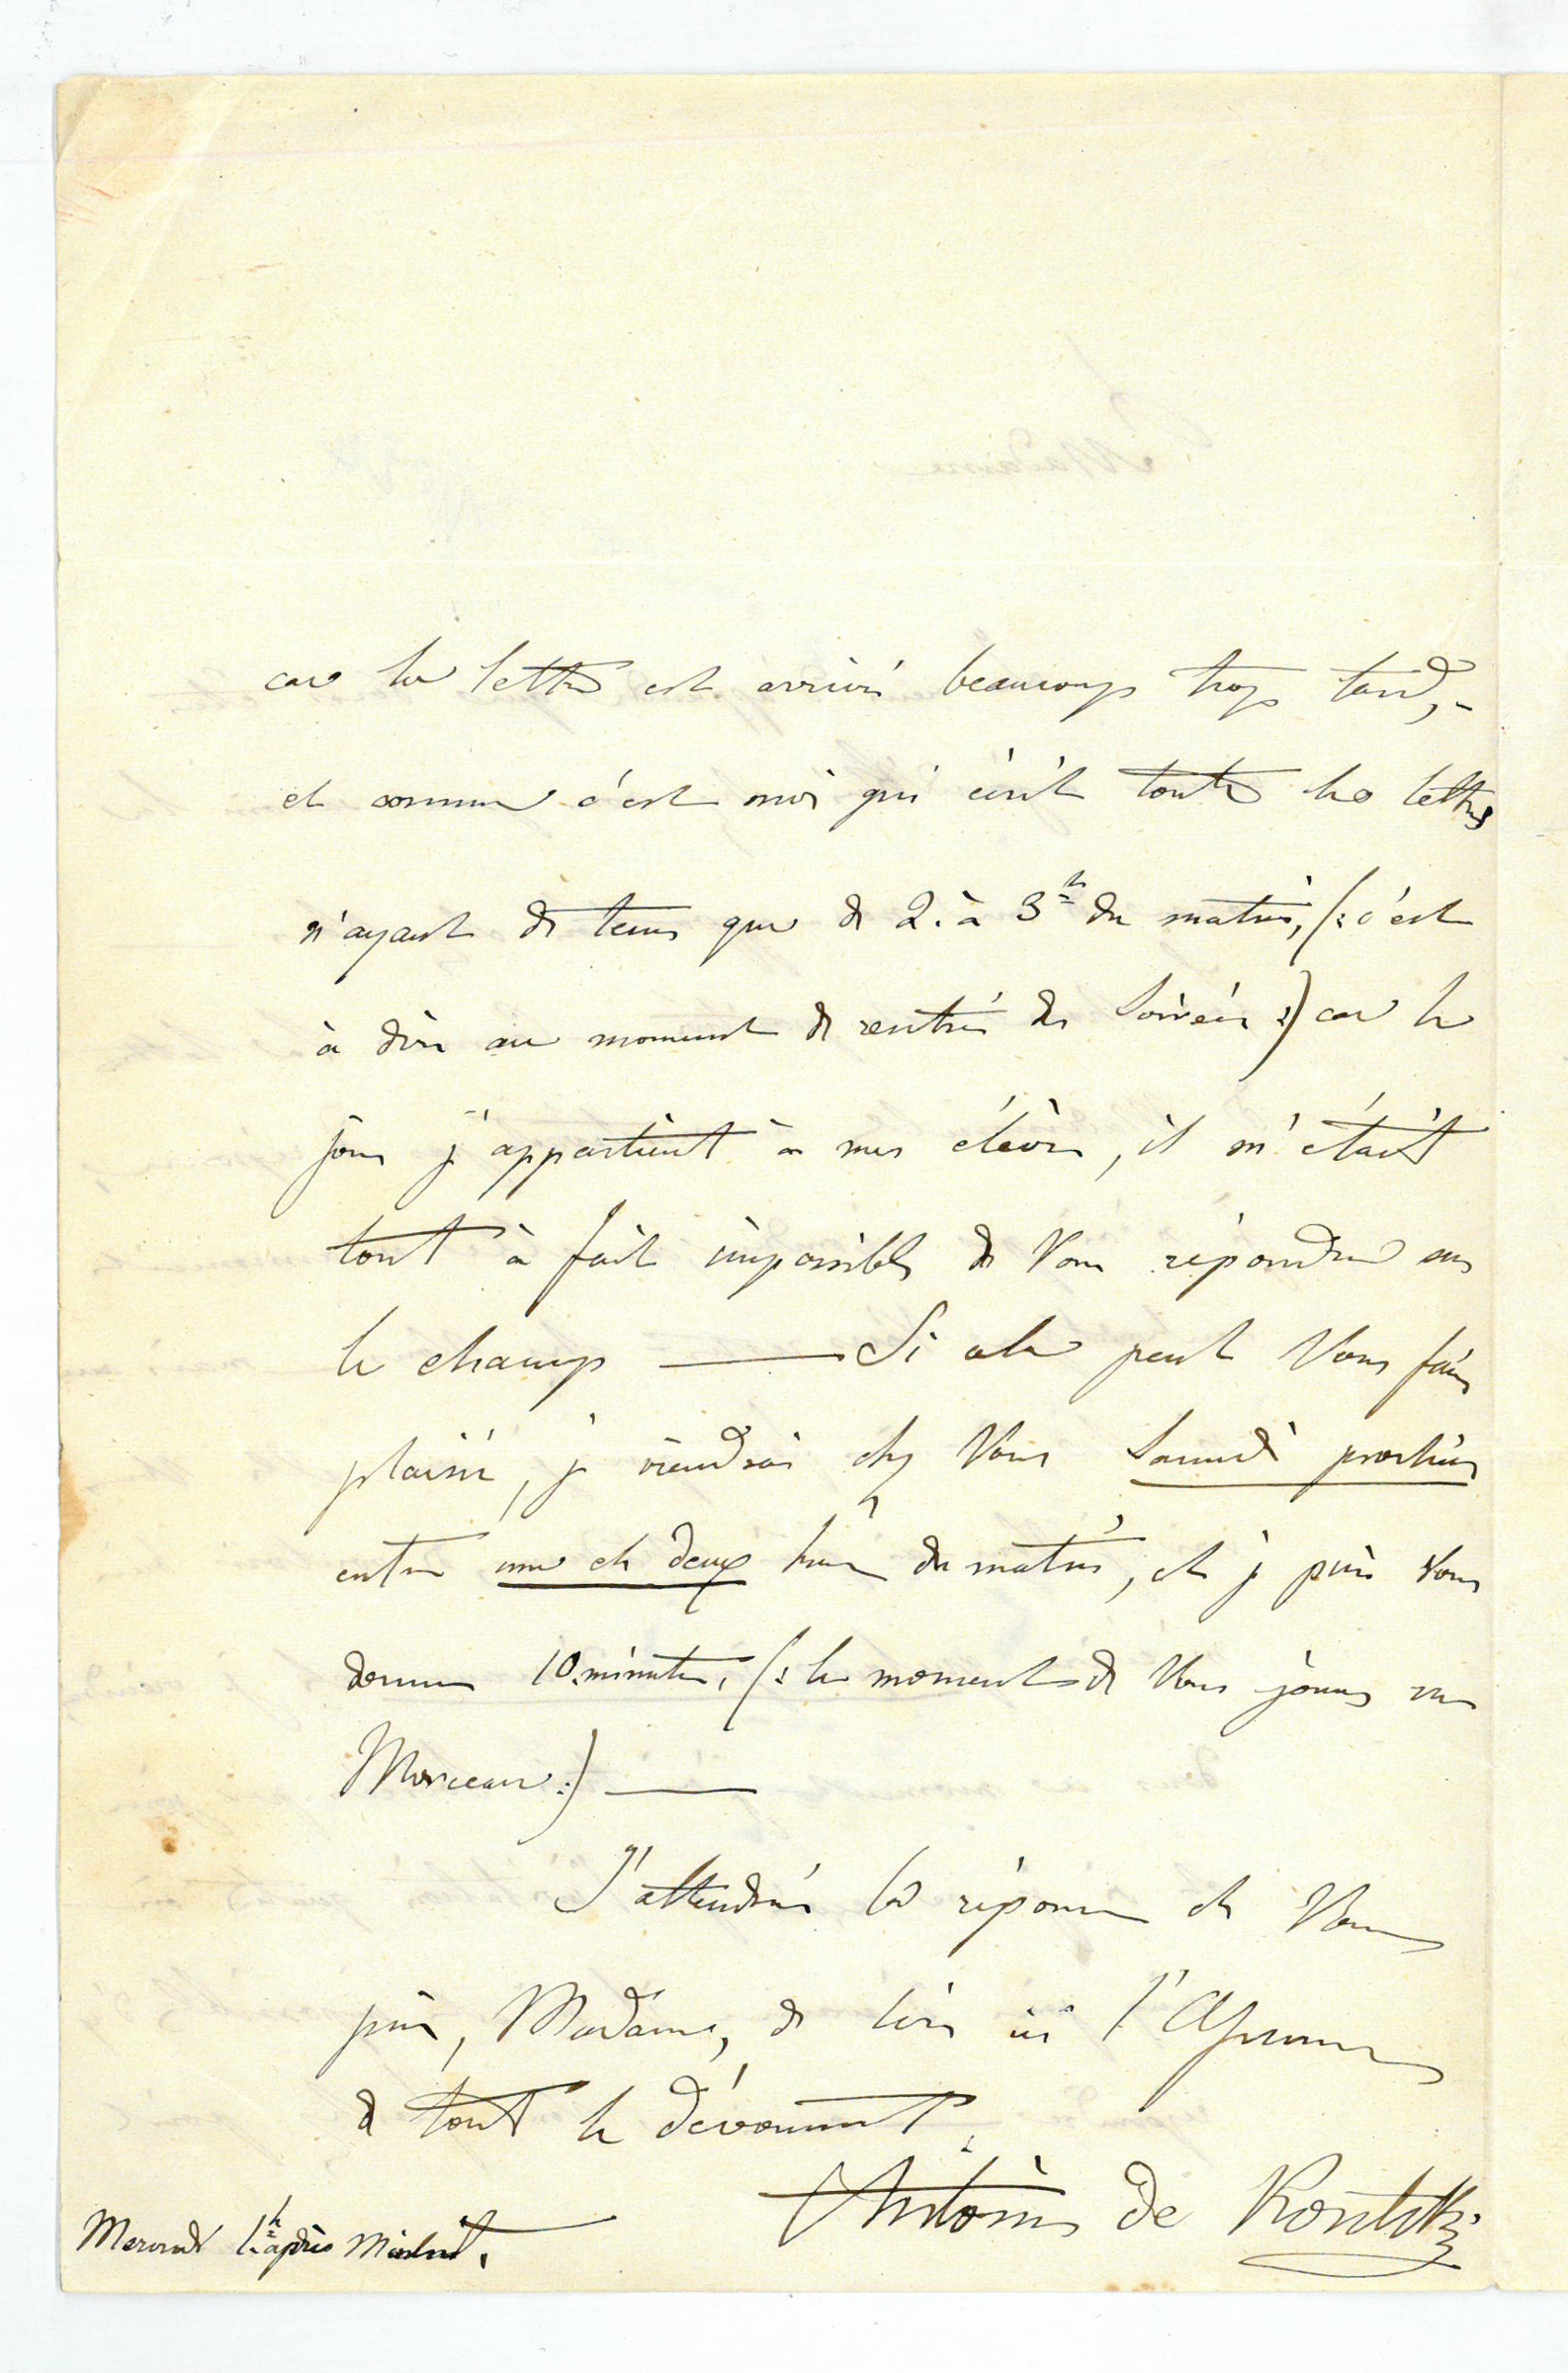 car la lettre est arrivé beaucoup trop tard, -
et comme c'est moi qui écrit toute les lettres
n'ayant de tems que de 2. à 3h du matin, (: c'est
à dire au moment de rentré des Soirées :) car le
jour j'appartient à mes élèves, il m'était
tout à fait impossible de Vous répondre sur
le champ — Si cela peut Vous faire
plaisir, je viendrai chez Vous Samedi prochain
entre une et deux heure du matin, et je puis Vous
donner 10. minutes, (: le moment de Vous jouer un
Morceau :) —
J'attendrai la réponse et Vous
prie, Madame, de lire ici l'
de tout le dévoument.
Antoine de Kontski
Mercredi 1.h après Minuit.